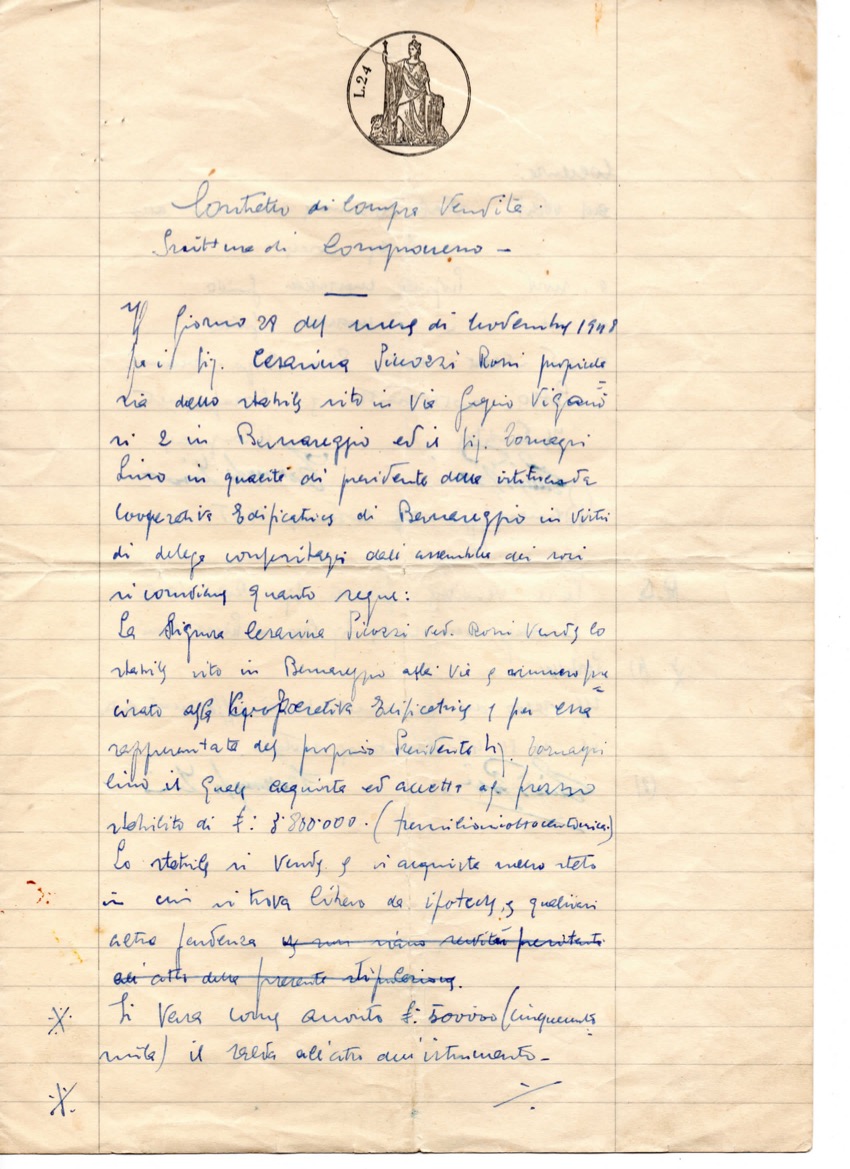 L. 24
Contratto di Compra Vendita.
Scrittura di Compromesso –
Il Giorno 28 del mese di Novembre 1948
fra il Sig. Cesarina Picozzi Rossi proprieta
ria dello stabile sito in Via Viganò
n 2 in Bernareggio ed il Sig. Tornaghi
Lino in qualità di presidente della istituenda
Cooperativa Edificatrice di Bernareggio in virtù
di delega conferitagli dall'assemblea dei soci
si conviene quanto segue:
La Signora Cesarina Picozzi ved. Rossi Vende lo
stabile sito in Bernareggio alla Via e numero pre
cisato alla Cooperativa Edificatrice e per essa
rappresentata del proprio Presidente Sig. Tornaghi
Lino il Quale acquista ed accetta al prezzo
stabilito di £: 3.800.000. (tremilioniottocentomila)
Lo stabile si Vende e si acquista nello stato
in cui si trova libero da ipoteche e qualsiasi
altra pendenza se non siano servitù
all'atto della presente stipulazione.
Si Versa come acconto £: 500000 (cinquecento
mila) il saldo all'atto dell'istrumento –